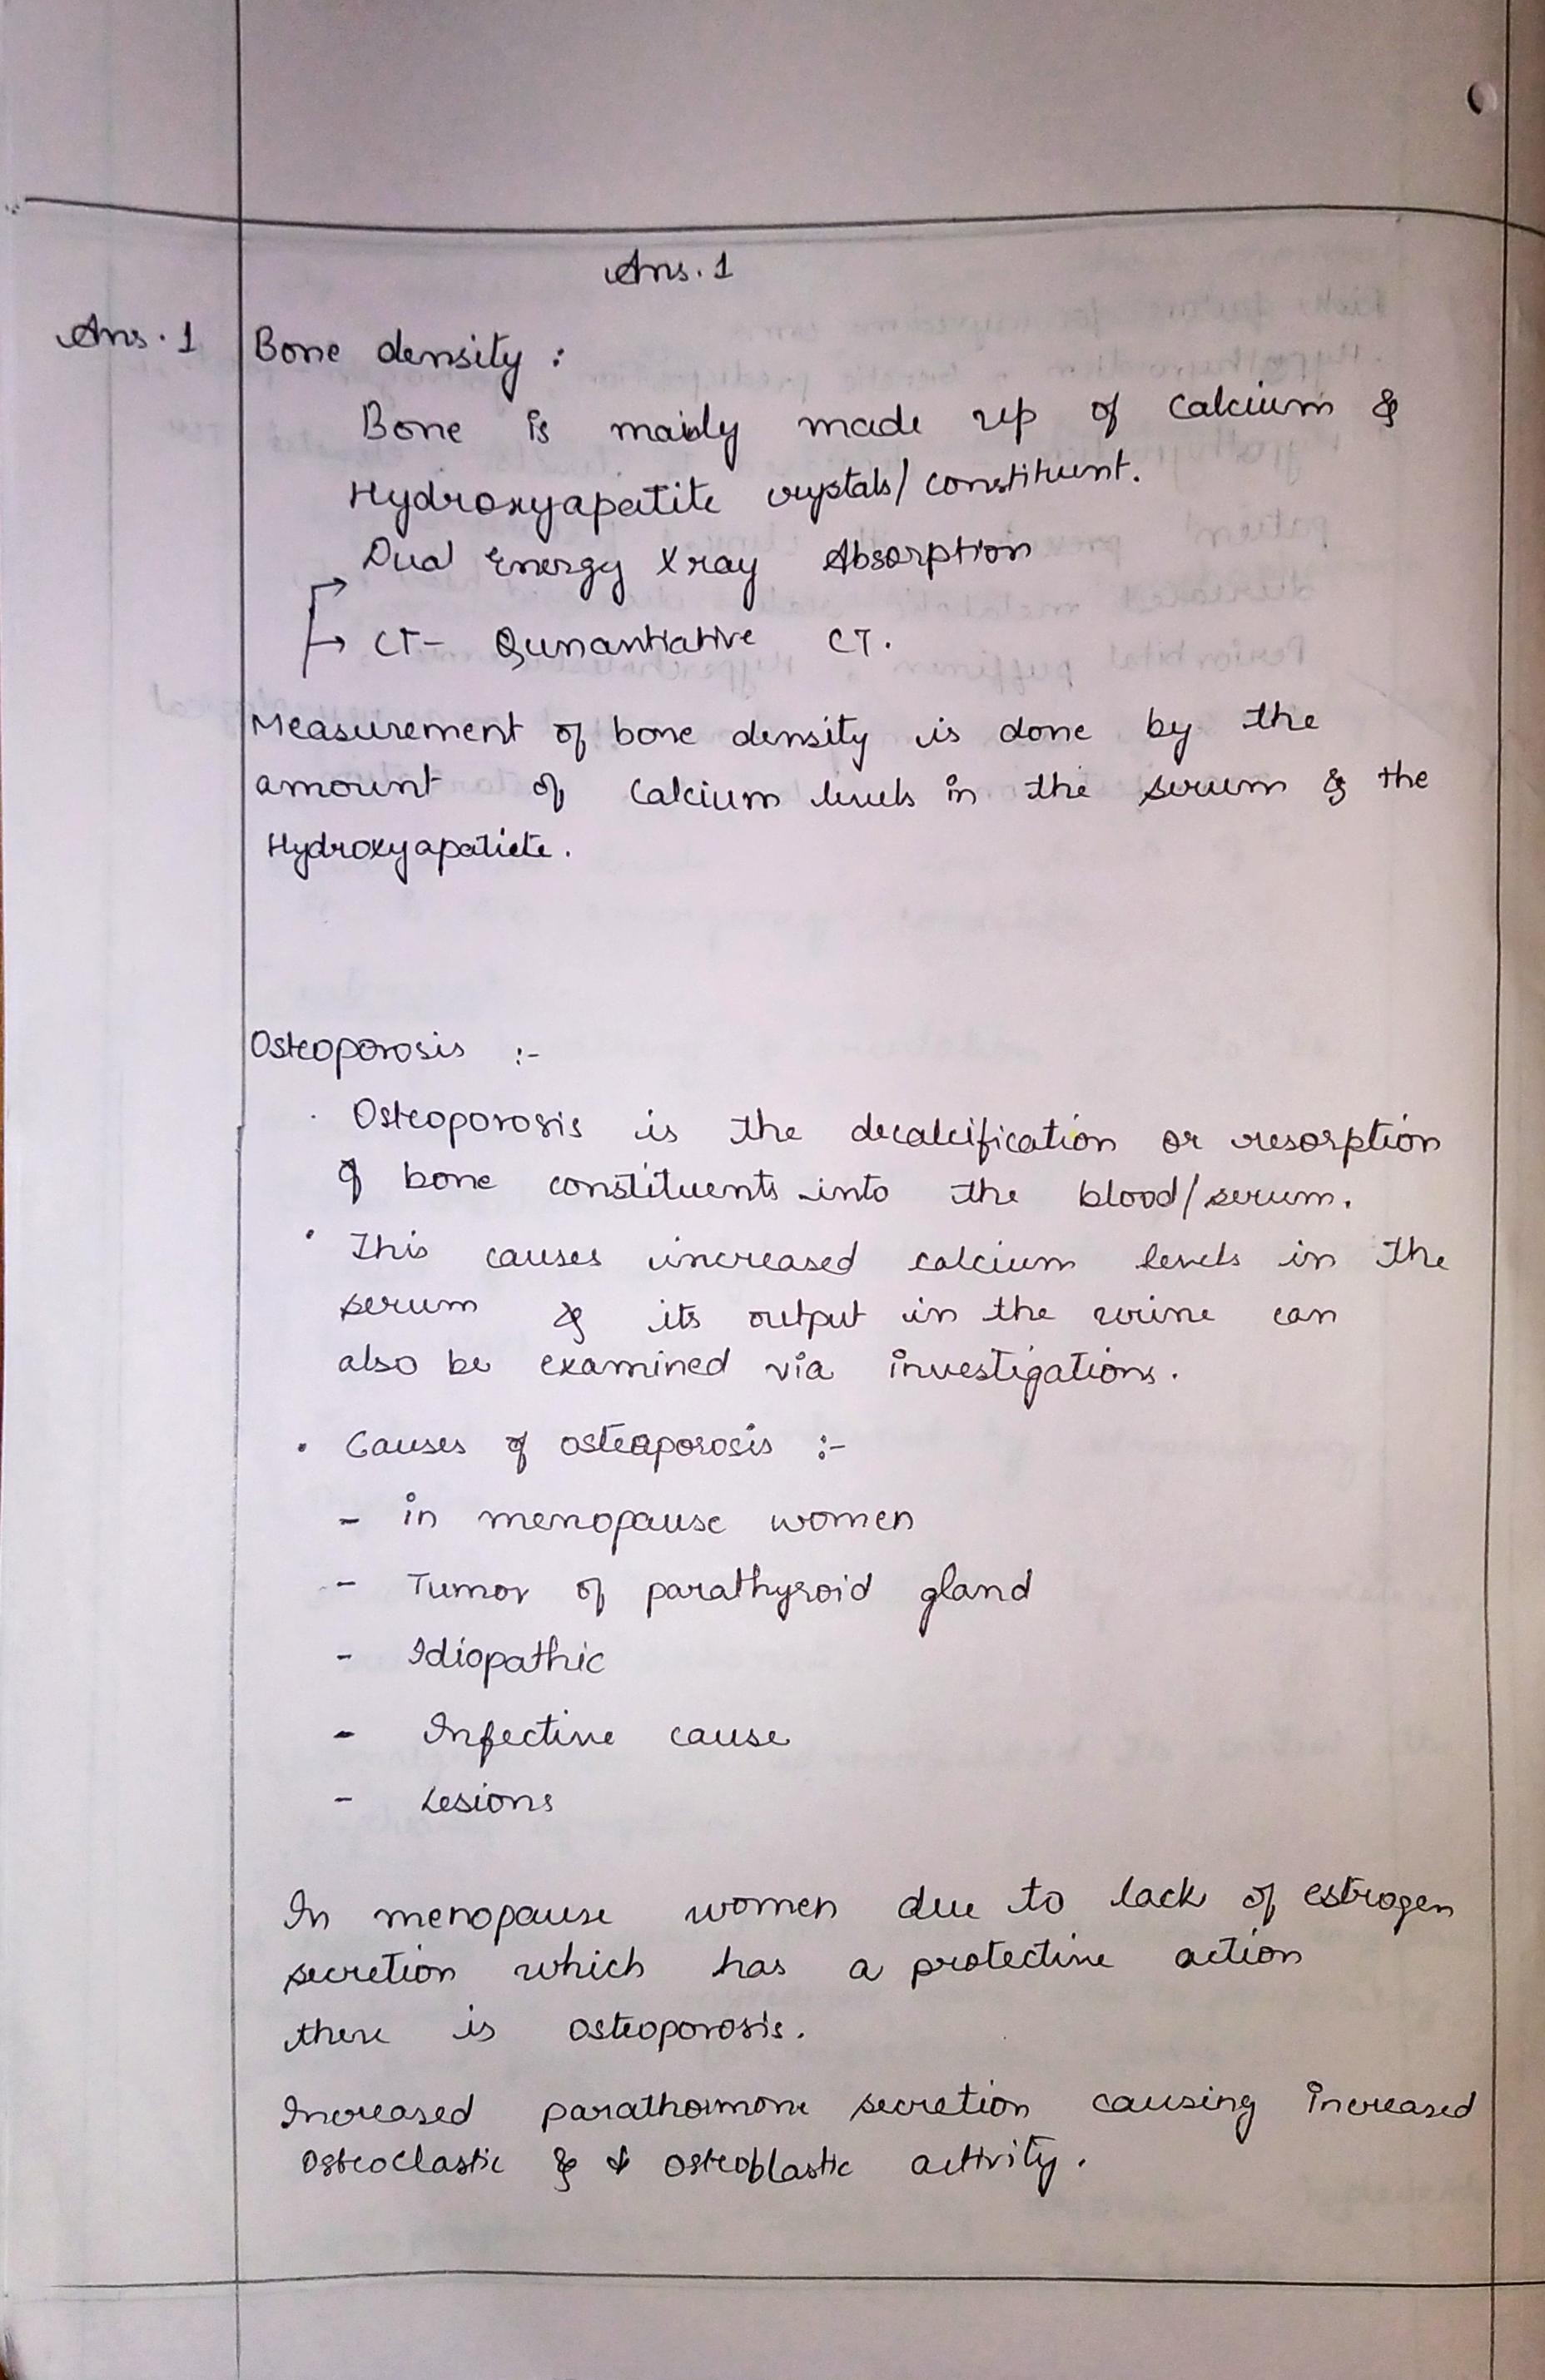 Ans. 1
Ans. 1 Bone density :
Bone is mainly made up of Calcium &
Hydroxyapatite crystals/ constituent.
Dual Energy Xray Absorption
→ CT- Qunantiative CT.
Measurement of bone density is done by the
amount of Calcium levels in the serum & the
Hydroxyapatiete.
Osteoporosis :-
· Osteoporosis is the decalcification or resorption
of bone constituents into the blood/serum.
· This causes increased calcium levels in the
serum & its output in the urine can
also be examined via investigations.
· Causes of osteoporosis :-
- in menopause women
- Tumor of parathyroid gland
- Idiopathic
- Infective cause
- Lesions
In menopause women due to lack of estrogen
secretion which has a protective action
there is osteoporosis.
Increased parathormone secretion causing increased
Osteoclastic & ↓ osteoblastic activity.